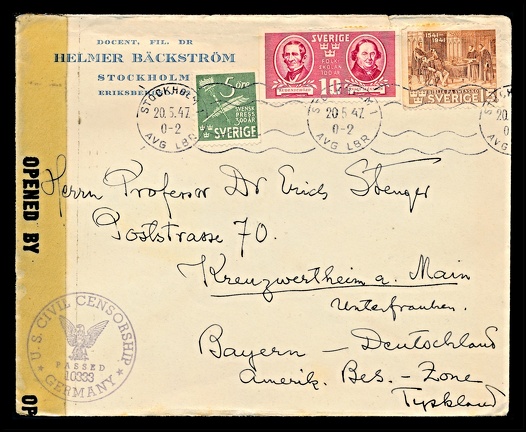 DOCENT, FIL. DR
HELMER BÄCKSTRÖM
STOCKHOLM
5 öre
SVENSK
PRESS
300 ÅR
SVERIGE
SVERIGE
FOLK
SKOLAN
100 ÅR
10
1541
1941
BIBELN PÅ SVENSKA
SVERIGE
STOCKHOLM
20.5.47
0-2
AVG LBR
20.5.47
0-2
AVG LBR
20.
OPENED BY
Herrn Professor Dr Erich Stenger
Poststrasse 70.
Kreuzwertheim a. Main
Unterfranken.
Bayern – Deutschland
Amerik. Bes. – Zone
Tyskland
U.S. CIVIL CENSORSHIP
PASSED
10333
GERMANY
OP